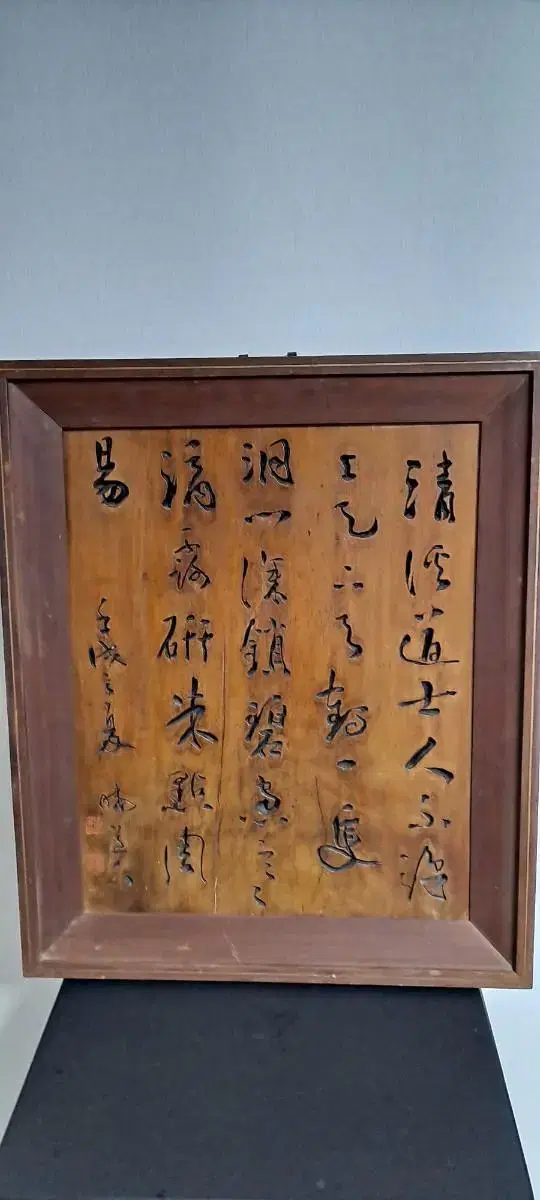 清溪道士人不識
上天下天鶴一隻
洞門深鎖碧窓寒
滴露研朱點周
易 壬戌之夏